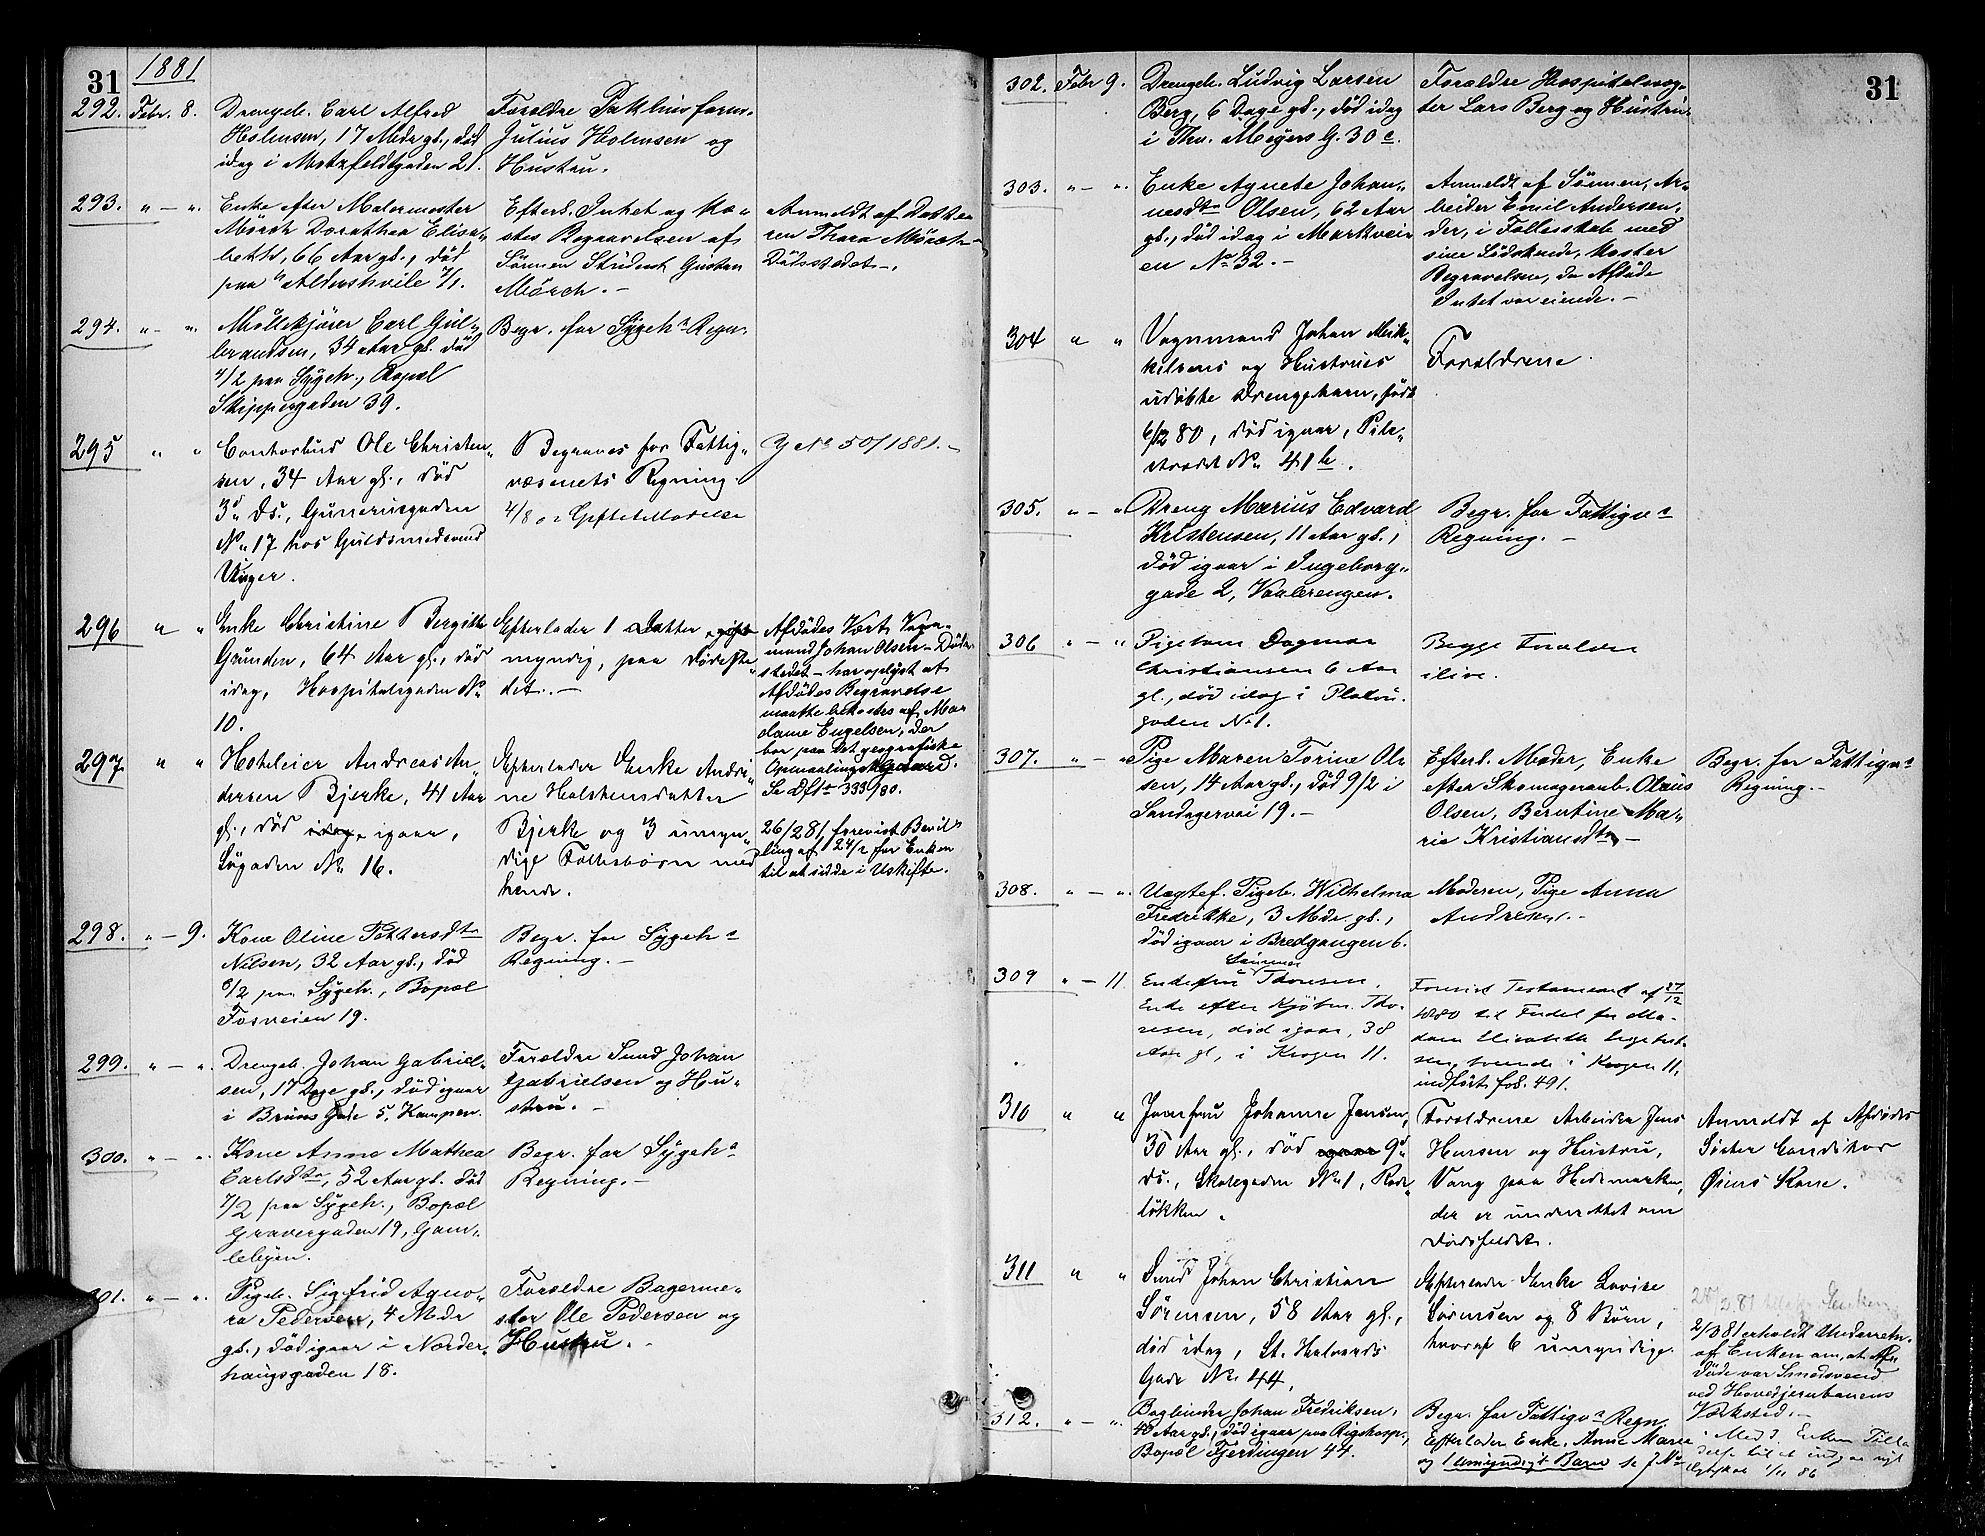 31
1881
292. Febr. 8.
Drengeb. Carl Alfred
Holmsen, 17 Mdr gl., død
idag i Motzfeldtgaden 21.
Forældre Pakhusform.
Julius Holmsen og
Hustru.
293. " — ".
Enke efter Malermester
Mörch Dorothea Elisa„
beth, 66 Aar gl., død
paa "Aldershvile 7/1.
Efterl. Intet og Ko„
stes Begravelsen af
Sönnen Student Gustav
Mörch. —
Anmeldt af Datte
ren Thora Mörch —
Dödsstedet —.
294. " — ".
Möllekjörer Carl Gul„
brandsen, 34 Aar gl. død
4/2 paa Sygeh., Bopæl
Skippergaden 39.
Begr. for Sygehs Regn.
295 " "
Contorbud Ole Christen„
sen, 34 Aar gl., død
3d Ds., Gunerusgaden
No 17 hos Guldsmedsvend
Unger.
Begraves for Fattig„
væsenets Regning.
J No 50/1881. —
296 " "
Enke Christine Bergitte
Grunden, 64 Aar gl., død
idag, Hospitalsgaden No
10.
Efterlader 1 Datter gift
myndig, paa Dødsste„
det. —
Afdødes Vært, Vogn„
mand Johan Olsen — Døds„
stedet — har oplyst at
Afdødes Begravelse
maatte bekostes af Ma„
dame Engelsen, der
bor paa Det geografiske
Opmaalings Gaard.
Se Dfto 333/80.
297. " "
Hoteleier Andreas An„
dersen Bjerke, 41 Aar
gl., død idag, igaar,
Søgaden No 16.
Efterlader Enke Andri„
ne Halstensdatter
Bjerke og 3 umyn„
dige Fællesbørn med
hende.
26/2 81, forevist Bevil„
ling af 24/2 for Enken
til at sidde i Uskifte.
298. " — 9.
Kone Oline Pettersdtr
Nilsen, 32 Aar gl., død
8/2 paa Sygeh., Bopæl
Fosveien 19.
Begr. for Sygehs
Regning. —
299. " — ".
Drengeb. Johan Gabriel„
sen, 17 Dage gl., død igaar
i Bruns Gade 5, Kampen.
Forældre Smed Johan
Gabrielsen og Hu„
stru. —
300. " — ".
Kone Anne Mathea
Carlsdtr, 52 Aar gl. død
7/2 paa Sygeh., Bopæl
Gravergaden 19, Gam„
lebyen.
Begr. for Sygehs
Regning. —
301. " — ".
Pigeb. Sigfrid Agno„
ra Pedersen, 4 Mdr
gl., død igaar i Norder„
haugsgaden 18.
Forældre Bagerme„
ster Ole Pedersen og
Hustru. —
31
302. Febr 9.
Drengeb. Ludvig Larsen
Berg, 6 Dage gl., død idag
i Thv. Meyers G. 30 c.
Forældre Hospitalsvog„
ter Lars Berg og Hustru.
303. " — ".
Enke Agnete Johan„
nesdtr Olsen, 62 Aar
gl., død idag i Markvei„
en No 32. —
Anmeldt af Sönnen, Ar„
beider Emil Andersen,
der, i Fællesskab med
sine Södskende, koster
Begravelsen, da Afdöde
Intet var eiende. —
304 " "
Vognmand Johan Mik„
kelsens og Hustrues
udøbte Drengebarn, født
6/12 80, død igaar, Pile„
stradet No 41 b.
Forældrene
305. " — "
Dreng Marius Edvard
Kristensen, 11 Aar gl.,
død igaar i Ingeborg„
gade 2, Vaalerengen.
Begr. for Fattigvs
Regning. —
306 " — "
Pigebarn Dagmar
Christiansen 6 Aar
gl., død idag i Platou„
gaden No 1.
Begge Forældre
ilive.
307. " — "
Pige Maren Torine Ol„
sen, 14 Aar gl., död 9/2 i
Sandagervei 19. —
Efterl. Moder, Enke
efter Skomagerarb. Olaus
Olsen, Berntine Ma„
rie Kristiansdtr —
Begr. for Fattigvs
Regning. —
308. " — ".
Uægtef. Pigeb. Wilhelma
Fredrikke, 3 Mdr gl.,
død igaar i Bredgangen 6.
Moderen, Pige Anna
Andresen. —
309 " — 11.
Enkefru Thoresen,
Enke efter Kjöbm. Tho„
resen, død igaar, 38
Aar gl., i Krogen 11.
Forevist Testament af 27/12
1880 til Fordel for Ma„
dam Elisabeth
boende i Krogen 11,
indført fol. 491.
310 " "
Jomfru Johanne Jensen,
30 Aar gl., død igaar 9d
ds., Skolegaden No 1, Rode„
løkken.
Forældrene Arbeider Jens
Hansen og Hustru,
Vang paa Hedemarken,
der er underrettet om
Dødsfaldet.
Anmeldt af Afdødes
Søster Conditor
Øiens Kone.
311 " "
Smed Johan Christian
Sörensen, 58 Aar gl.,
død idag, St. Halvards
Gade No 44.
Efterlader Enke Lovise
Sörensen og 8 Börn,
hvoraf 6 umyndige.
2/3 81 erholdt Underretn.
af Enken om, at Af„
døde var Smedsvend
ved Hovedjernbanens
Værksted. —
312. " — ".
Bogbinder Johan Fredriksen,
40 Aar gl., død igaar paa Rigshosp.,
Bopæl Fjerdingen 44.
Begr. for Fattigvs Regn.
Efterlader Enke, Anne Marie
og 1 umyndigt Barn se J No
Enken Tilla
delse til at indgaa nyt
Ægteskab 1/11 86